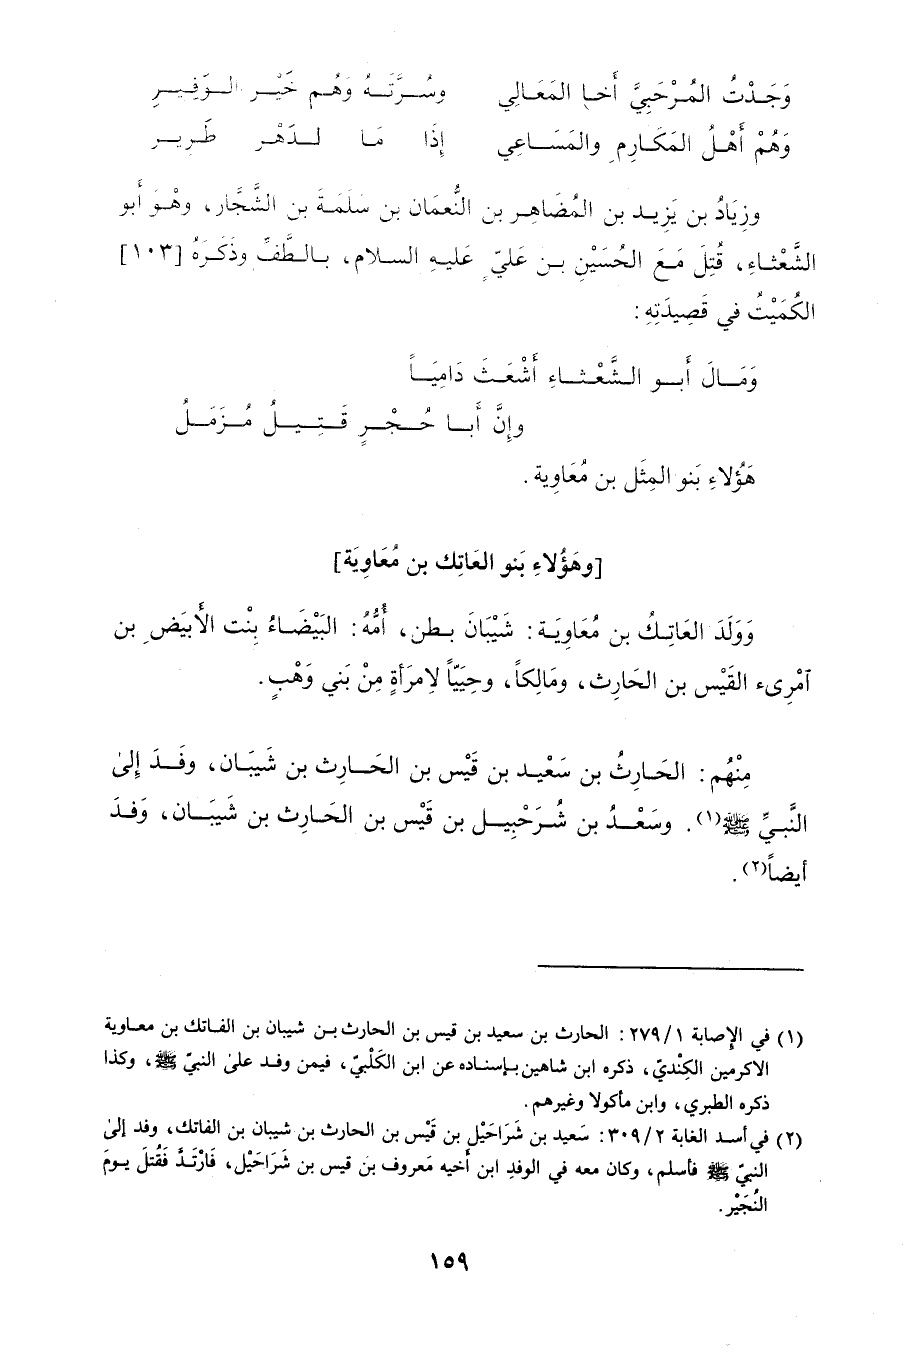 وَجَدْتُ المُرْحَبِيَّ أَخا المَعَالِي وسُرَّتَهُ وَهُم خَيْر الوَفِيرِ
وَهُمْ أَهْلُ المَكَارِمِ والمَسَاعِي إِذَا مَا لدَهْر طَرِير
وزِيَادُ بن يَزِيد بن المُضَاهِر بن النُّعمَان بن سَلَمَة بن الشَّجَّار، وهْوَ أَبو
الشَّعْثاء، قُتِلَ مَعَ الحُسَيْنِ بن عَليّ عَليهِ السلام، بالطَّفِّ وذَكَرَهُ [١٠٣]
الكُمَيْتُ في قَصِيدَتِهِ:
وَمَالَ أَبو الشَّعْثاء أَشْعَثَ دَامِيَاً
وإِنَّ أَبا حُجْرٍ قَتِيلُ مُزَمَلُ
هَؤُلاءِ بَنو المِثَل بن مُعَاوِية.
[وهَؤُلاءِ بَنو العَاتِك بن مُعَاوِيَة]
وَوَلَدَ العَاتِكُ بن مُعَاوِيَة: شَيْبَانَ بطن، أُمُّهُ: البَيْضَاءُ بِنْت الأَبيَضِ بن
آمْرِىء القَيْس بن الحَارِث، ومَالِكاً، وحِيَيّاً لِامرَأَةٍ مِنْ بَني وَهْبٍ.
مِنْهُم: الحَارِثُ بن سَعْيد بن قَيْس بن الحَارِث بن شَيبَان، وفَدَ إِلىٰ
النَّبيِّ ﷺ(١). وسَعْدُ بن شُرَحْبِيل بن قَيْس بن الحَارِث بن شَيبَان، وَفدَ
أيضاً(٢).
(١) في الإصابة ٢٧٩/١: الحارث بن سعيد بن قيس بن الحارث بن شيبان بن الفاتك بن معاوية
الاكرمين الكِنْديّ، ذكره ابن شاهين بإسناده عن ابن الكَلْبيّ، فيمن وفد علىٰ النبيّ ﷺ، وكذا
ذكره الطبري، وابن مأكولا وغيرهم.
(٢) في أسد الغابة ٣٠٩/٢: سَعيد بن شَرَاحَيْل بن قَيْس بن الحارث بن شيبان بن الفاتك، وفد إلىٰ
النبيّ ﷺ فأسلم، وكان معه في الوفدِ ابن أخيه مَعروف بن قيس بن شَرَاحَيْل، فَارْتَدَّ فَقُتلَ يومَ
النُجَيْر.
١٥٩